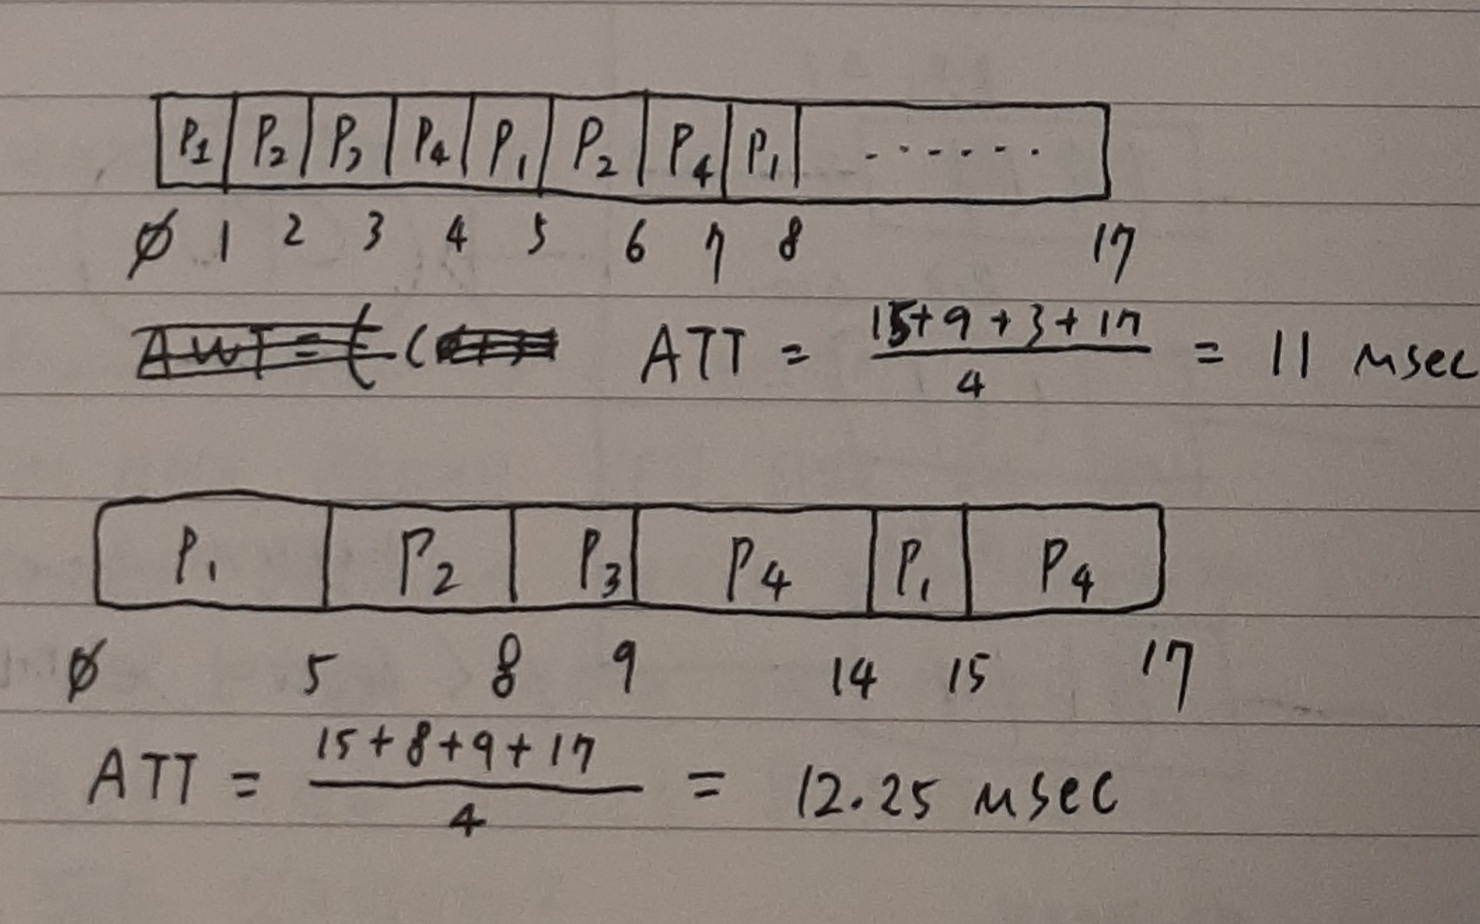 P1 P2 P3 P4 P1 P2 P4 P1 .......
0 1 2 3 4 5 6 7 8 17
ATT = 15+9+3+17 / 4 = 11 msec
P1 P2 P3 P4 P1 P4
0 5 8 9 14 15 17
ATT = 15+8+9+17 / 4 = 12.25 msec